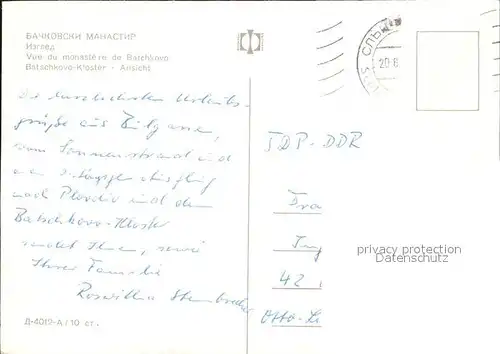 БАЧКОВСКИ МАНАСТИР
Изглед
Vue du monastère de Batchkovo
Batschkovo-Kloster - Ansicht
Die herzlichsten Urlaubs-
grüße aus Bulgarien,
vom Sonnenstrand und
Ausflug
nach Plovdiv und dem
Batschkovo-Kloster
sendet Ihnen, sowie
Ihrer Familie
Roswitha
Д-4012-А / 10 ст.
СЛЪН
20.8
TDP-DDR
Fra
42
Otto-
privacy protection
Datenschutz